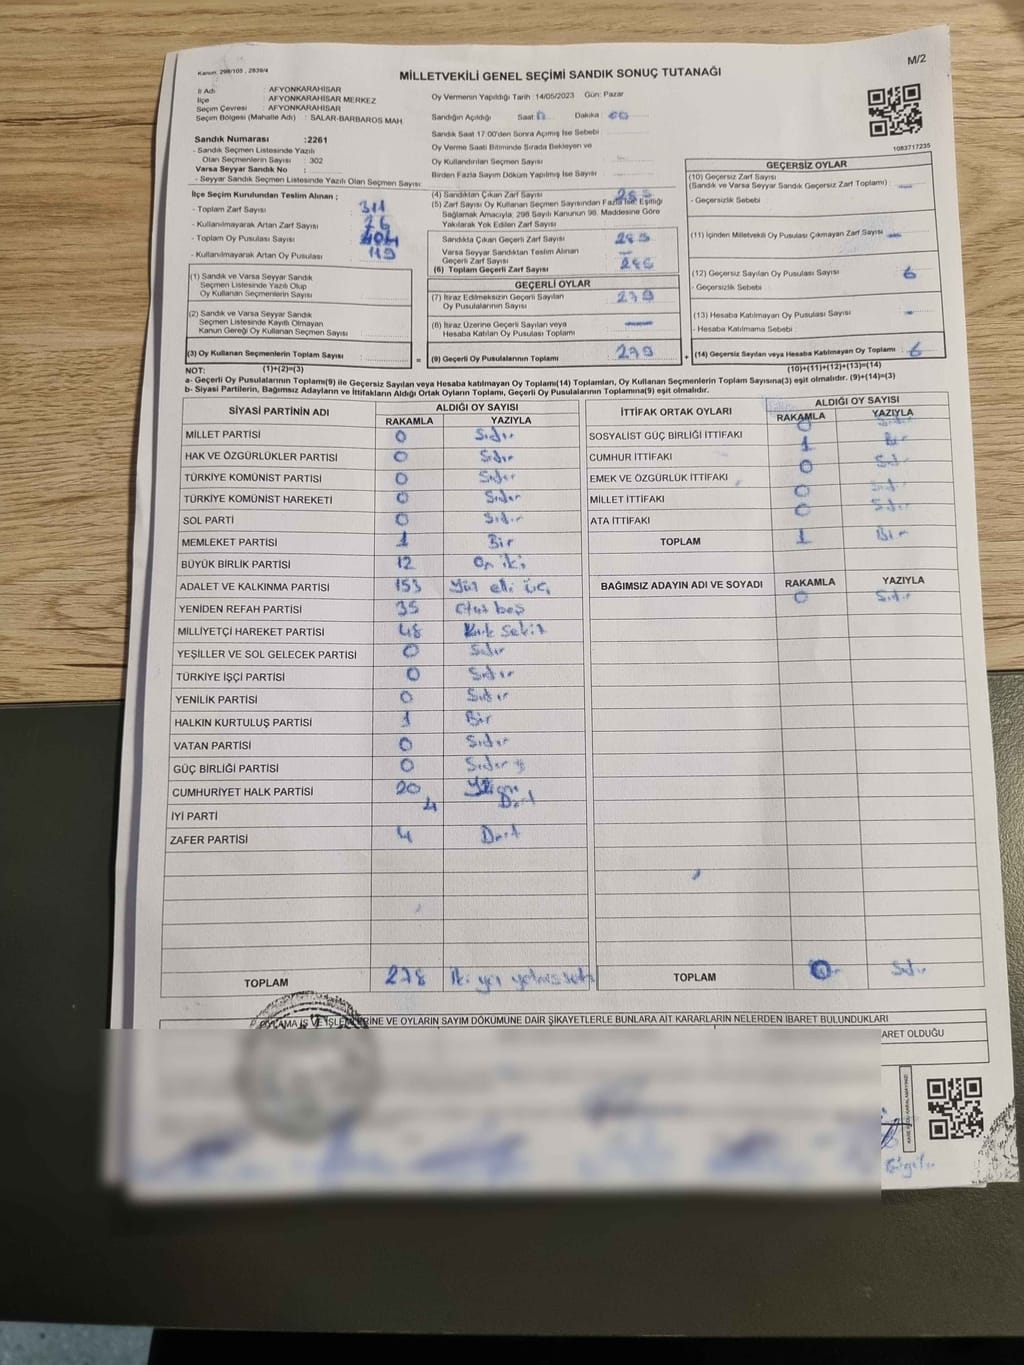 M/2
Kanun: 298/105 , 2839/4
MİLLETVEKİLİ GENEL SEÇİMİ SANDIK SONUÇ TUTANAĞI
İl Adı : AFYONKARAHİSAR
İlçe : AFYONKARAHİSAR MERKEZ
Seçim Çevresi : AFYONKARAHİSAR
Seçim Bölgesi (Mahalle Adı) : SALAR-BARBAROS MAH.
Sandık Numarası :2261
- Sandık Seçmen Listesinde Yazılı
Olan Seçmenlerin Sayısı : 302
Varsa Seyyar Sandık No :
- Seyyar Sandık Seçmen Listesinde Yazılı Olan Seçmen Sayısı:
Oy Vermenin Yapıldığı Tarih :14/05/2023 Gün: Pazar
Sandığın Açıldığı Saat Dakika : 00
Sandık Saat 17:00'den Sonra Açılmış İse Sebebi :
Oy Verme Saati Bitiminde Sırada Bekleyen ve
Oy Kullandırılan Seçmen Sayısı :
Birden Fazla Sayım Döküm Yapılmış İse Sayısı :
1083717235
İlçe Seçim Kurulundan Teslim Alınan ;
- Toplam Zarf Sayısı : 311
- Kullanılmayarak Artan Zarf Sayısı : 26
- Toplam Oy Pusulası Sayısı : 404
- Kullanılmayarak Artan Oy Pusulası : 119
(1) Sandık ve Varsa Seyyar Sandık
Seçmen Listesinde Yazılı Olup
Oy Kullanan Seçmenlerin Sayısı :
(2) Sandık ve Varsa Seyyar Sandık
Seçmen Listesinde Kayıtlı Olmayan
Kanun Gereği Oy Kullanan Seçmen Sayısı :
(3) Oy Kullanan Seçmenlerin Toplam Sayısı : =
(4) Sandıktan Çıkan Zarf Sayısı : 285
(5) Zarf Sayısı Oy Kullanan Seçmen Sayısından Fazla İse; Eşitliği
Sağlamak Amacıyla; 298 Sayılı Kanunun 98. Maddesine Göre
Yakılarak Yok Edilen Zarf Sayısı :
Sandıkta Çıkan Geçerli Zarf Sayısı : 285
Varsa Seyyar Sandıktan Teslim Alınan
Geçerli Zarf Sayısı : —
(6) Toplam Geçerli Zarf Sayısı : 285
GEÇERLİ OYLAR
(7) İtiraz Edilmeksizin Geçerli Sayılan
Oy Pusulalarının Sayısı : 279
(8) İtiraz Üzerine Geçerli Sayılan veya
Hesaba Katılan Oy Pusulası Toplamı : —
(9) Geçerli Oy Pusulalarının Toplamı : 279 +
GEÇERSİZ OYLAR
(10) Geçersiz Zarf Sayısı
(Sandık ve Varsa Seyyar Sandık Geçersiz Zarf Toplamı) : —
- Geçersizlik Sebebi :
(11) İçinden Milletvekili Oy Pusulası Çıkmayan Zarf Sayısı : —
(12) Geçersiz Sayılan Oy Pusulası Sayısı : 6
- Geçersizlik Sebebi :
(13) Hesaba Katılmayan Oy Pusulası Sayısı : —
- Hesaba Katılmama Sebebi :
(14) Geçersiz Sayılan veya Hesaba Katılmayan Oy Toplamı : 6
NOT: (1)+(2)=(3) (10)+(11)+(12)+(13)=(14)
a- Geçerli Oy Pusulalarının Toplamı(9) ile Geçersiz Sayılan veya Hesaba katılmayan Oy Toplamı(14) Toplamları, Oy Kullanan Seçmenlerin Toplam Sayısına(3) eşit olmalıdır. (9)+(14)=(3)
b- Siyasi Partilerin, Bağımsız Adayların ve İttifakların Aldığı Ortak Oyların Toplamı, Geçerli Oy Pusulalarının Toplamına(9) eşit olmalıdır.
SİYASİ PARTİNİN ADI ALDIĞI OY SAYISI
RAKAMLA YAZIYLA
MİLLET PARTİSİ 0 Sıfır
HAK VE ÖZGÜRLÜKLER PARTİSİ 0 Sıfır
TÜRKİYE KOMÜNİST PARTİSİ 0 Sıfır
TÜRKİYE KOMÜNİST HAREKETİ 0 Sıfır
SOL PARTİ 0 Sıfır
MEMLEKET PARTİSİ 1 Bir
BÜYÜK BİRLİK PARTİSİ 12 On iki
ADALET VE KALKINMA PARTİSİ 153 Yüz elli üç
YENİDEN REFAH PARTİSİ 35 Otuz beş
MİLLİYETÇİ HAREKET PARTİSİ 48 Kırk sekiz
YEŞİLLER VE SOL GELECEK PARTİSİ 0 Sıfır
TÜRKİYE İŞÇİ PARTİSİ 0 Sıfır
YENİLİK PARTİSİ 0 Sıfır
HALKIN KURTULUŞ PARTİSİ 1 Bir
VATAN PARTİSİ 0 Sıfır
GÜÇ BİRLİĞİ PARTİSİ 0 Sıfır
CUMHURİYET HALK PARTİSİ 20 Yirmi
İYİ PARTİ 4 Dört
ZAFER PARTİSİ 4 Dört
TOPLAM 278 İki yüz yetmiş sekiz
İTTİFAK ORTAK OYLARI ALDIĞI OY SAYISI
RAKAMLA YAZIYLA
SOSYALİST GÜÇ BİRLİĞİ İTTİFAKI 0 Sıfır
CUMHUR İTTİFAKI 1 Bir
EMEK VE ÖZGÜRLÜK İTTİFAKI 0 Sıfır
MİLLET İTTİFAKI 0 Sıfır
ATA İTTİFAKI 0 Sıfır
TOPLAM 1 Bir
BAĞIMSIZ ADAYIN ADI VE SOYADI RAKAMLA YAZIYLA
0 Sıfır
TOPLAM 0 Sıfır
OYLAMA İŞ VE İŞLEMLERİNE VE OYLARIN SAYIM DÖKÜMÜNE DAİR ŞİKAYETLERLE BUNLARA AİT KARARLARIN NELERDEN İBARET BULUNDUKLARI
ARET OLDUĞU